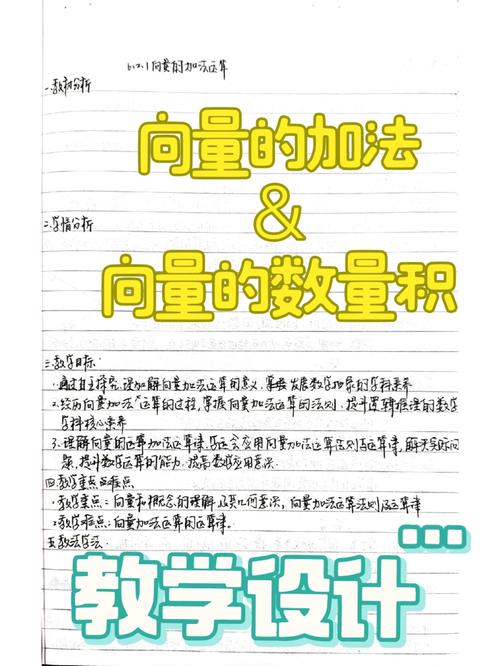 6.2.1向量的加法运算
一.教材分析
向量的加法
二.学情分析
&
向量的数量积
三.教学目标:
1.通过自主探究,理解向量加法运算的意义,掌握发展数学抽象的学科素养
2.经历向量加法运算的过程,掌握向量加法运算的法则,提升逻辑推理的数学
学科核心素养
3.理解向量的加法运算律,学会应用向量加法运算法则与运算律,解决实际问
题,提升数学运算的能力,提高数学应用意识.
四.教学重点与难点
1.教学重点:向量和概念的理解及其几何意义,向量加法运算法则及运算律
2.教学难点:向量加法运算的运算律.
五.教法学法
教学设计